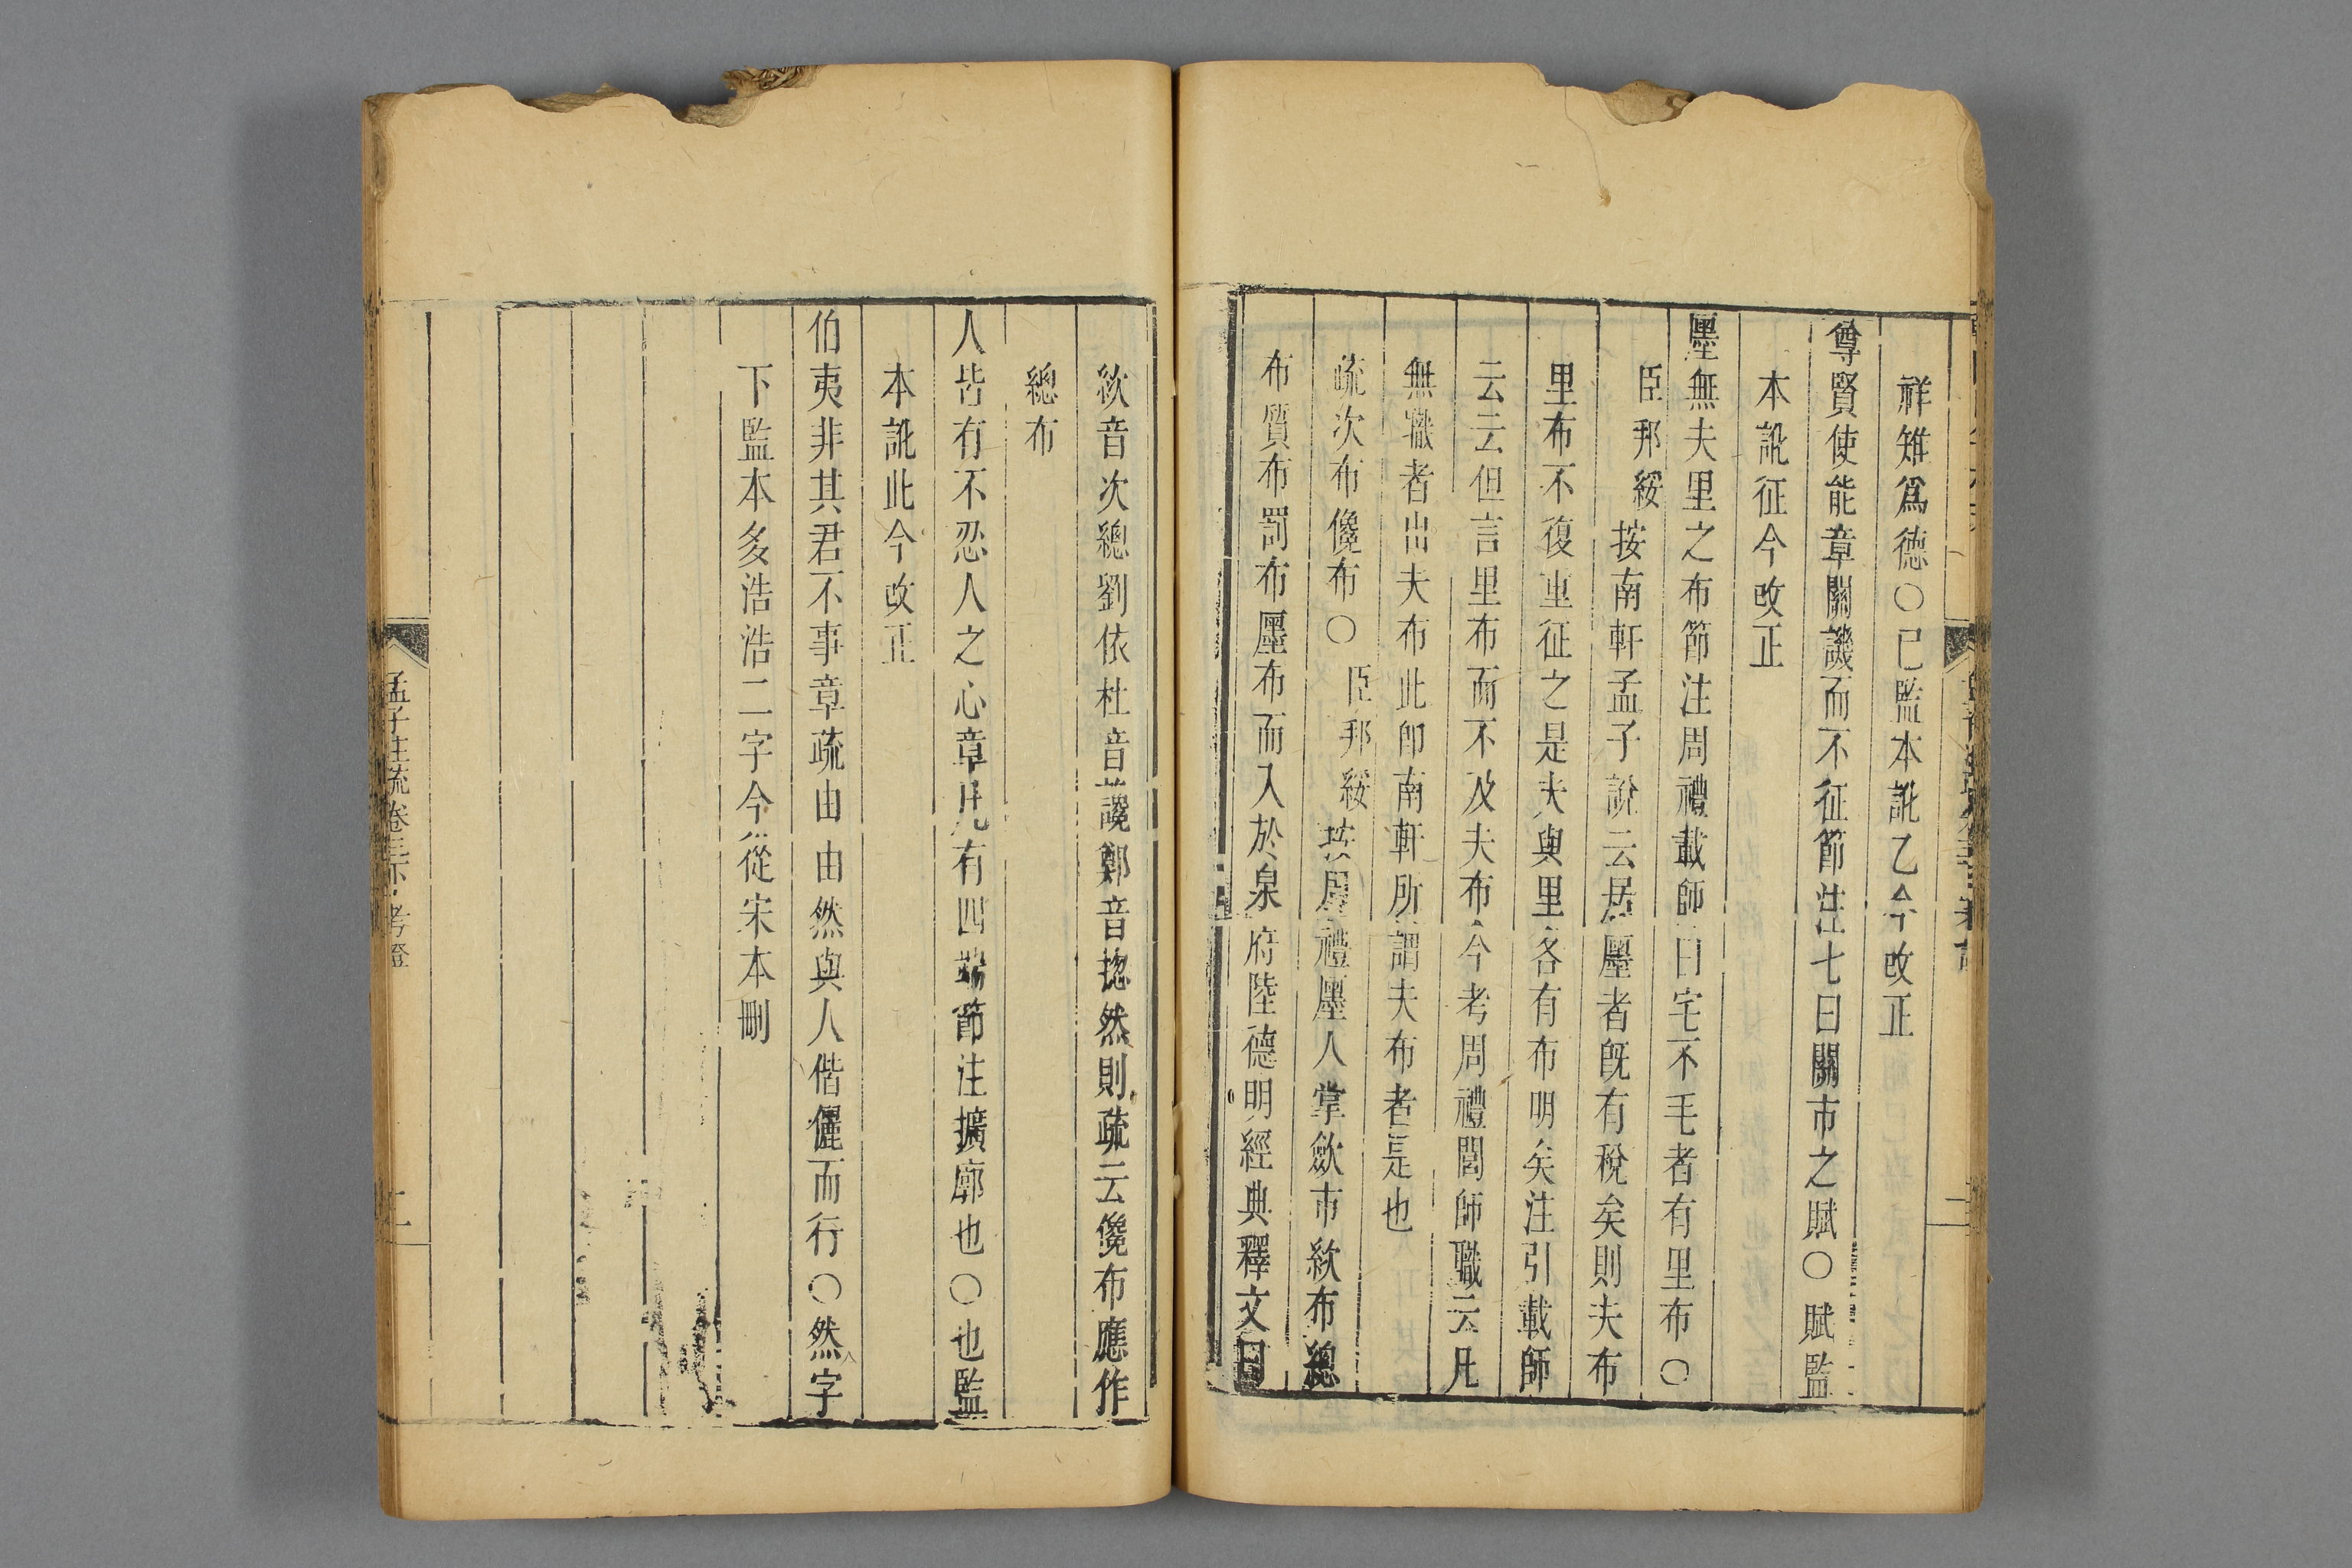 祥雉爲德○已監本訛乙今改正
尊賢使能章關譏而不征節注七曰關市之賦○賦監
本訛征今改正
廛無夫里之布節注周禮載師曰宅不毛者有里布○
臣邦綏按南軒孟子說云居廛者旣有稅矣則夫布
里布不復重征之是夫與里各有布明矣注引載師
云云但言里布而不及夫布今考周禮閭師職云凡
無職者出夫布此卽南軒所謂夫布者是也
疏次布儳布○臣邦綏按周禮廛人掌斂市絘布總
布質布罰布廛布而入於泉府陸德明經典釋文曰
絘音次總劉依杜音儳鄭音揔然則疏云儳布應作
總布
人皆有不忍人之心章凡有四端節注擴廓也○也監
本訛此今改正
伯夷非其君不事章疏由由然與人偕儷而行○然字
下監本多浩浩二字今從宋本刪
孟子注疏卷三下考證